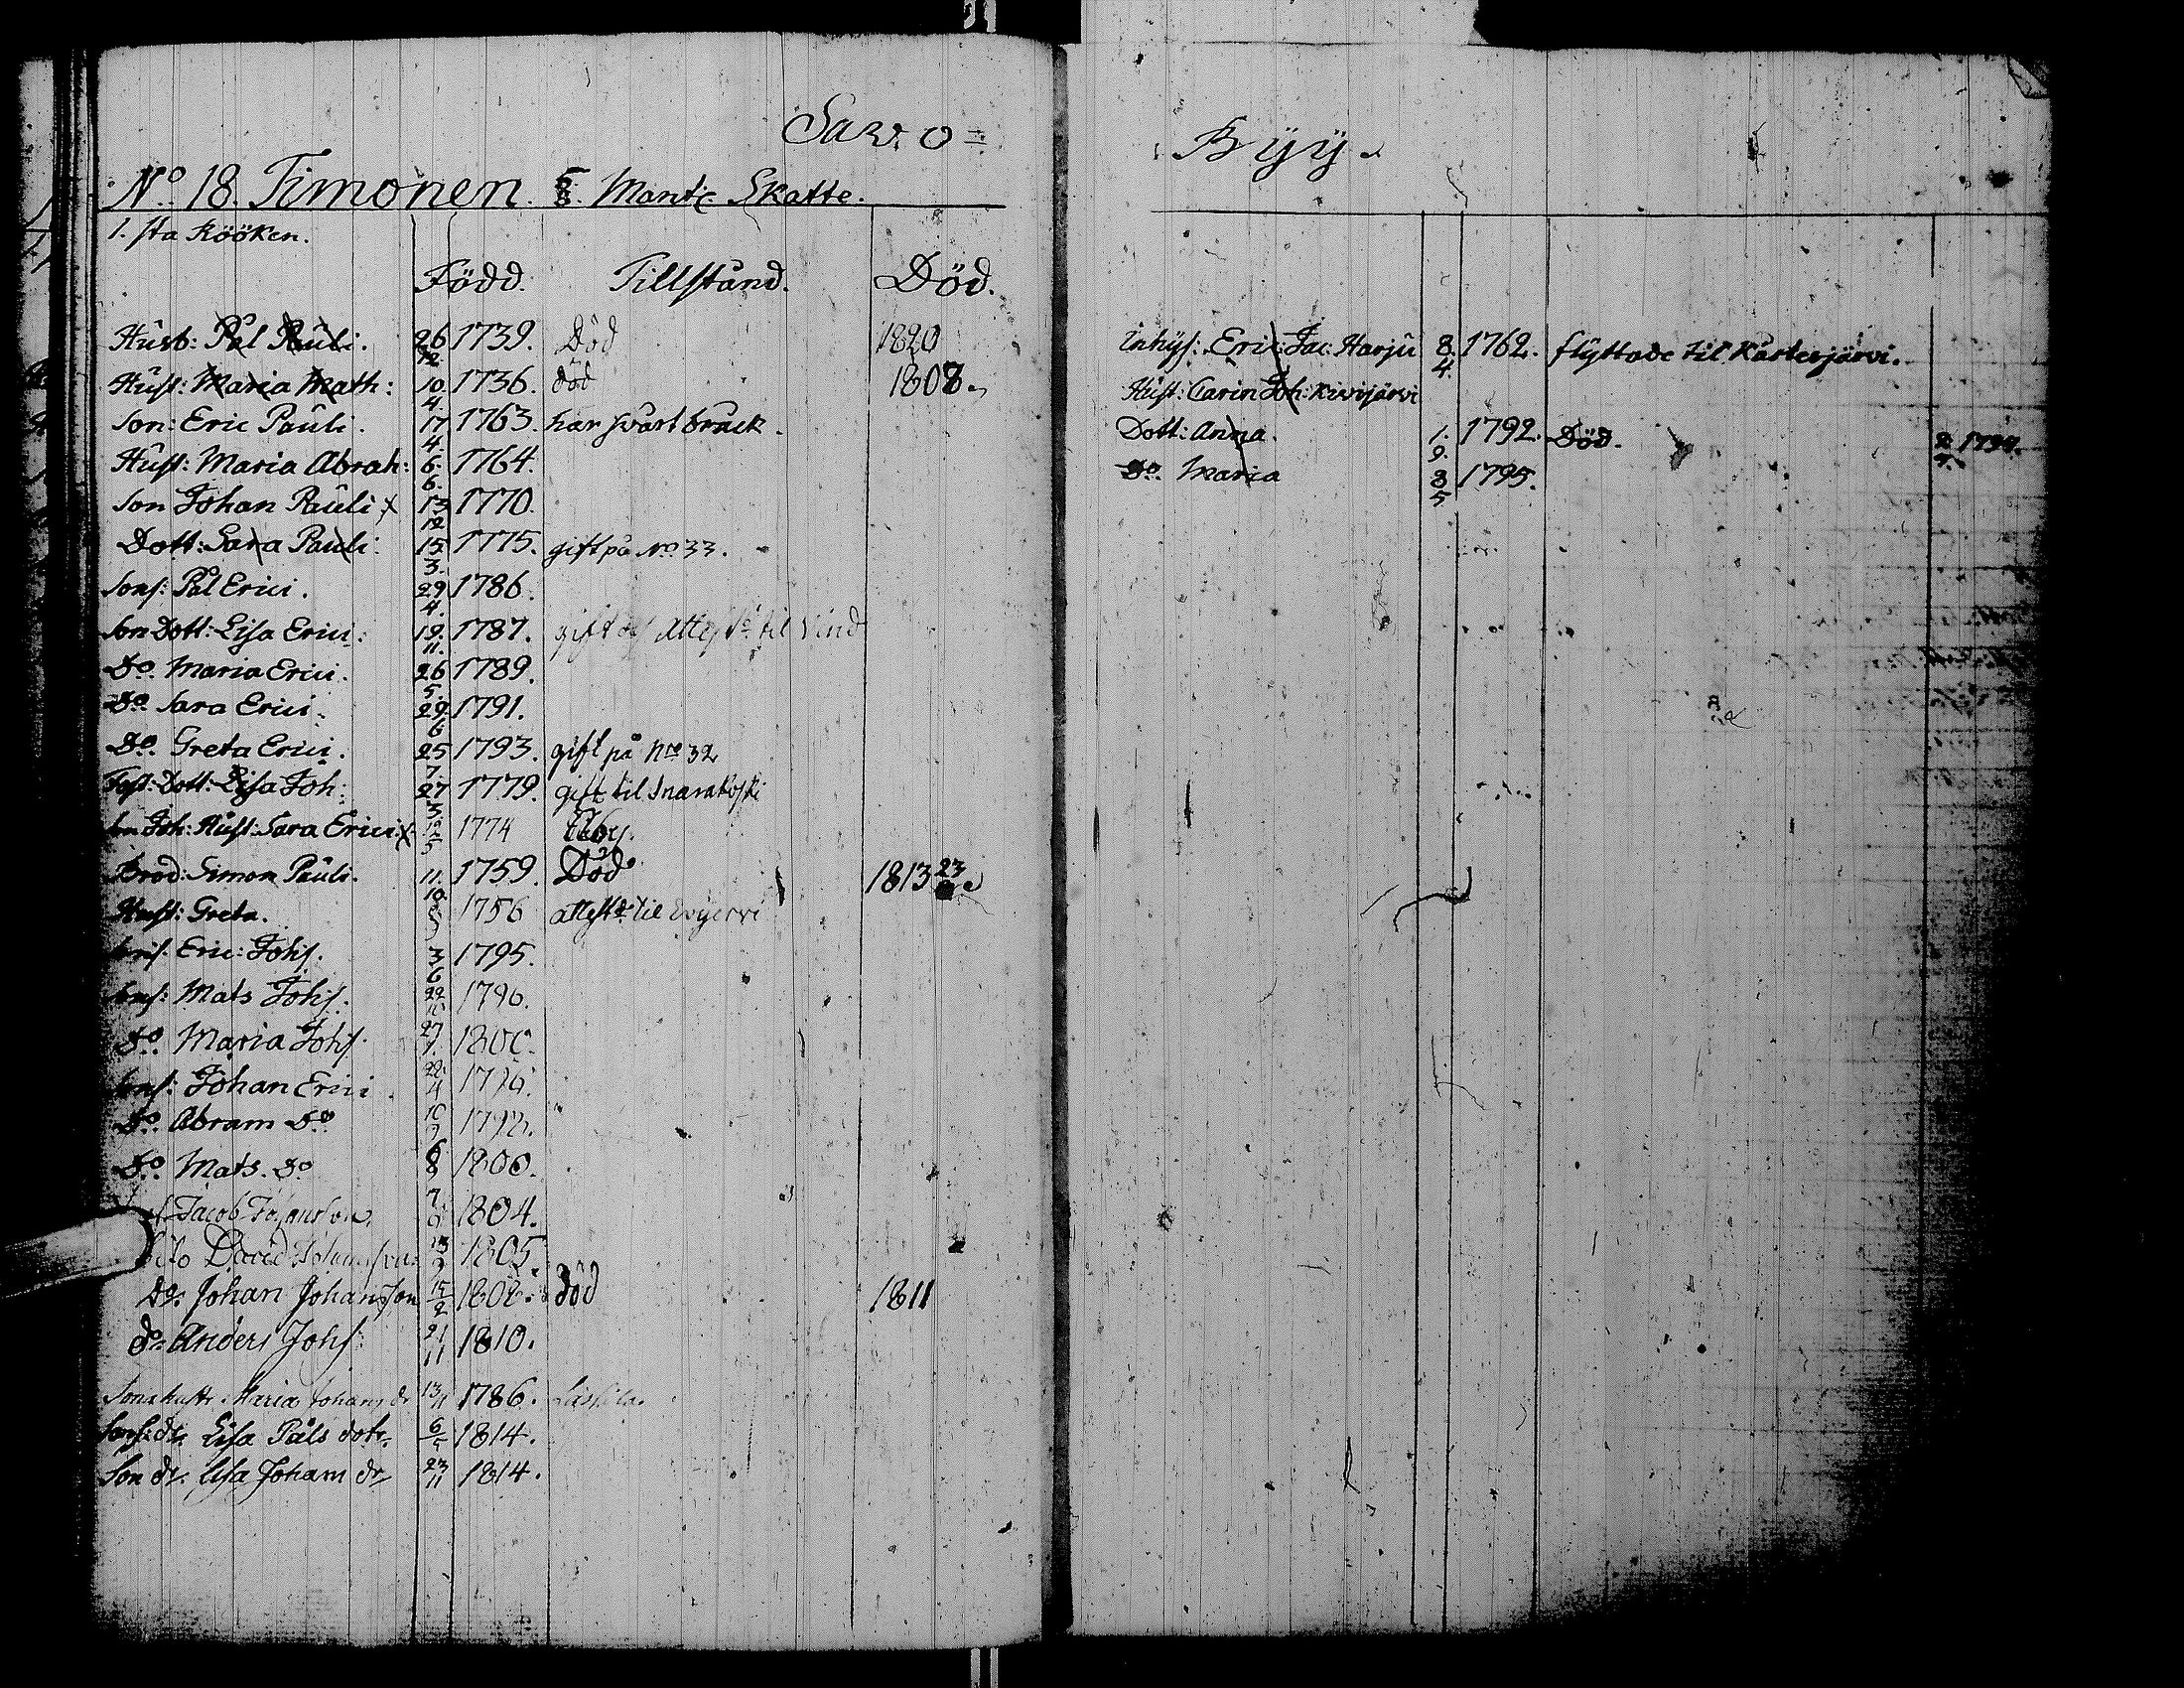 Savo=
No 18. Timonen. 5/8. Mantl Skatte.
1. sta Rööken.
Född. Tillstånd. Död.
Husb: Pål Pauli. 26/12 1739. Död 1820
Hust: Maria Math: 10/4 1736. död 1808.
Son: Eric Pauli. 17/4 1763. har svårt bråck.
Hust: Maria Abrah: 6/6 1764.
Son Johan Pauli x 13/12 1770.
Dott: Sara Pauli. 15/3 1775. gift på No 33.
Sons: Pål Erici. 29/4 1786.
Son Dott: Lisa Erici: 19/11 1787. gift til Vind
Do. Maria Erici. 26/5 1789.
Do. Sara Erici. 29/6 1791.
Do. Greta Erici. 25/7 1793. gift på Nro 32
Fost: Dott: Lisa Joh: 27/3 1779. gift til
Son Joh: Hust: Sara Erici x 12/5 1774
Brod: Simon Pauli. 11/10 1759. Död. 1813 23
Hust: Greta. 1756 attest til
Eric: Johs. 3/6 1795.
Sons: Mats Johs. 22/10 1796.
Do. Maria Johs. 27 1800.
Sons: Johan Erici 22/4 1796.
Do. Abram Do. 10
Do. Mats. Do 6/8 1800.
Jacob Johansson 7 1804.
David Johansson 13 1805
Do. Johan Johansson 15/2 1808. död 1811
do Anders Johs: 21/11 1810.
Sons hustr. Maria Johans dr 13/11 1786.
Sons: dr. Lisa Påls dotr. 6 1814.
Son dr. Lisa Johans dr 23/11 1814.
Byy.
Inhys: Eric: Jac: Harju 8/4 1762. flyttade til Kårtesjärvi.
Hust: Carin Joh: Kivijärvi
Dott: Anna. 1/9 1792. Död.
Do. Maria 8/5 1795.